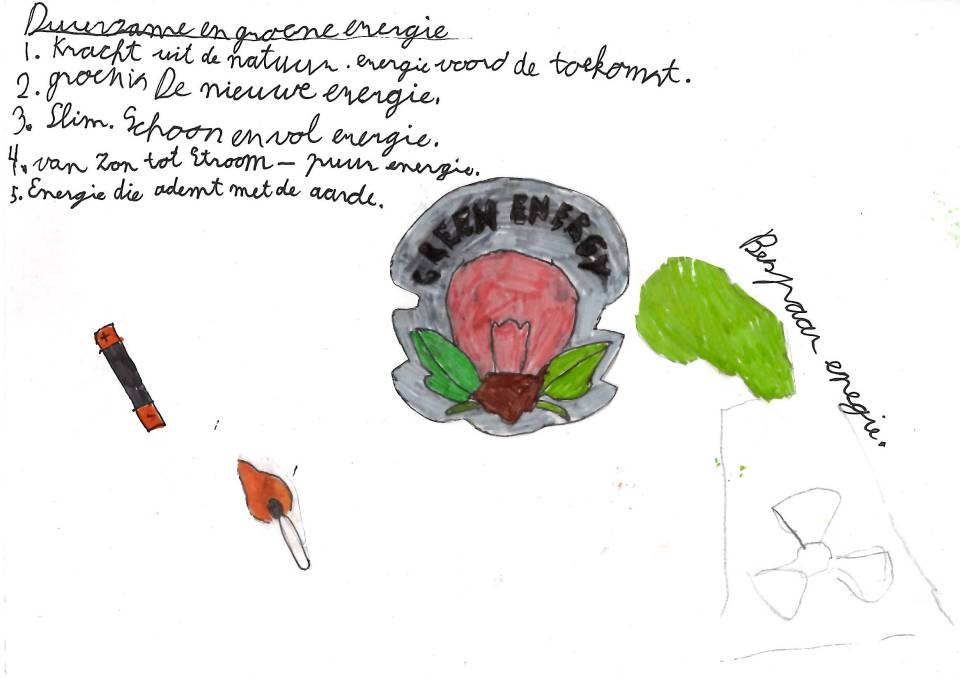 Duurzame en groene energie
1. Kracht uit de natuur. energie voord de toekomst.
2. groen is De nieuwe energie.
3. Slim. Schoon en vol energie.
4. van Zon tot Stroom – puur energie.
5. Energie die ademt met de aarde.
GREEN ENERGY
Bespaar enegie.
+
-